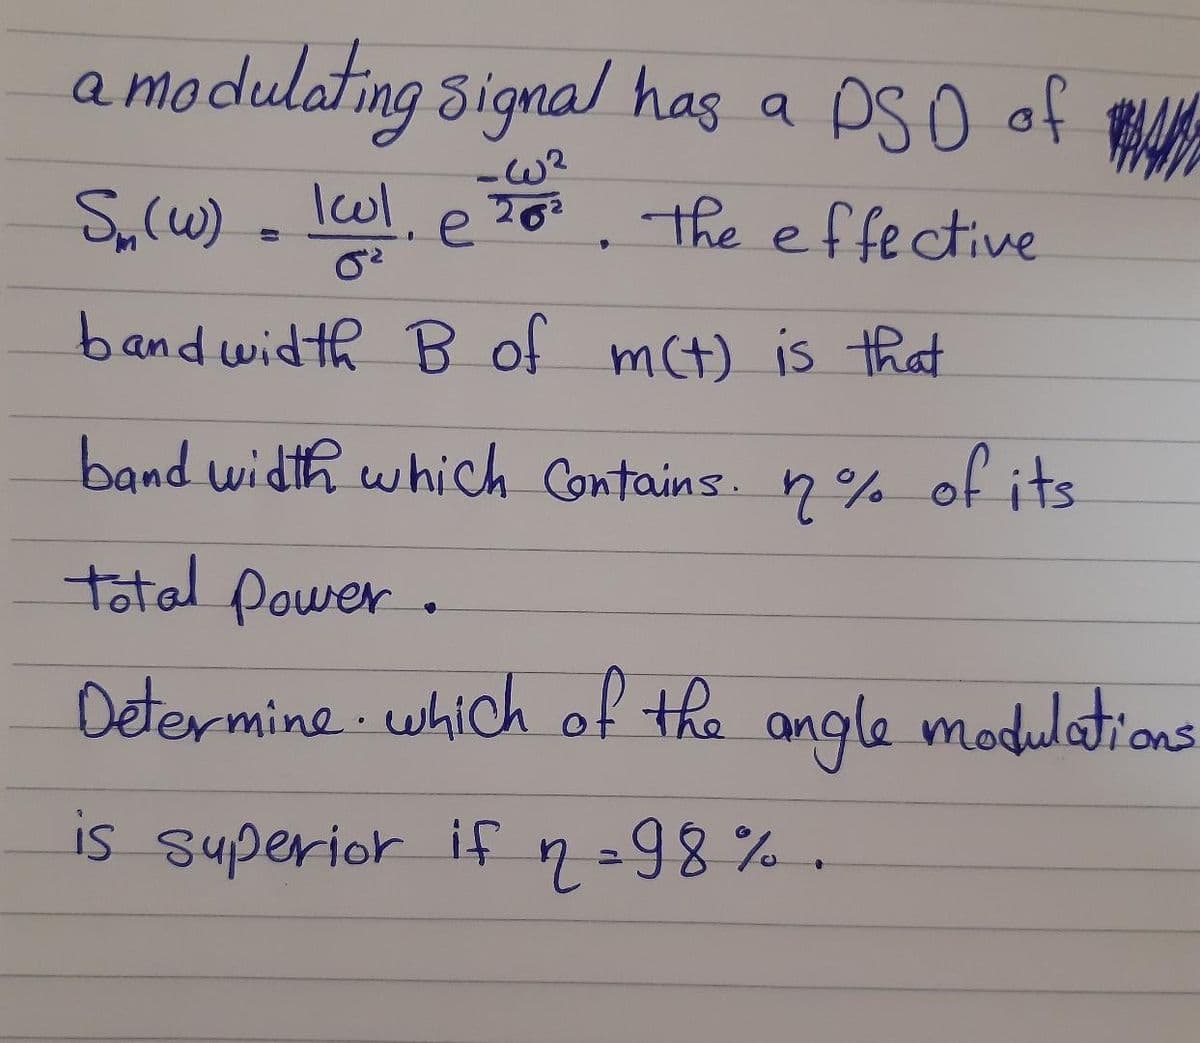 a modulating signal has a PSD of
Sₘ(ω) = |ω|/σ² . e^(-ω²/2σ²) . the effective
bandwidth B of m(t) is that
band width which Contains. η % of its
total power .
Determine . which of the angle modulations
is superior if η = 98 % .